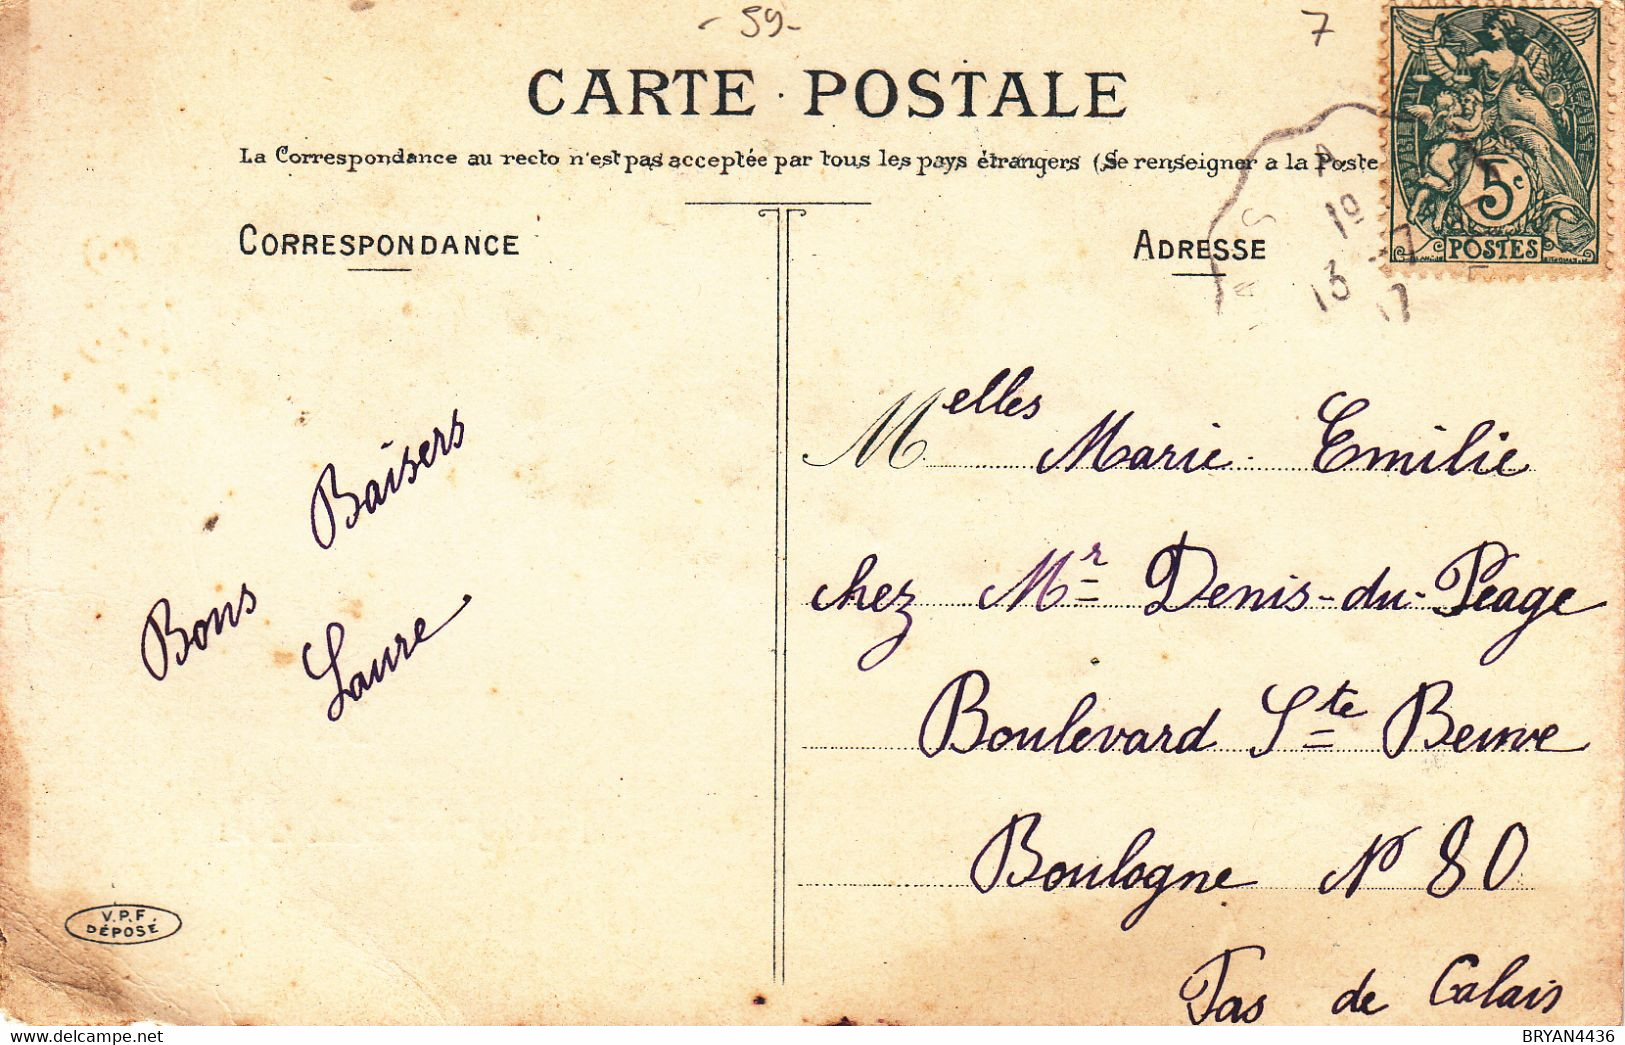 - 59- 7
CARTE POSTALE
La Correspondance au recto n'est pas acceptée par tous les pays étrangers (Se renseigner a la Poste
5c
POSTES
CORRESPONDANCE
Bons Baisers
Laure.
V.P.F.
DÉPOSÉ
ADRESSE
Melles Marie Emilie
chez Mr Denis-du-Péage
Boulevard Ste Beuve
Boulogne N 80
Pas de Calais
BRYAN4436